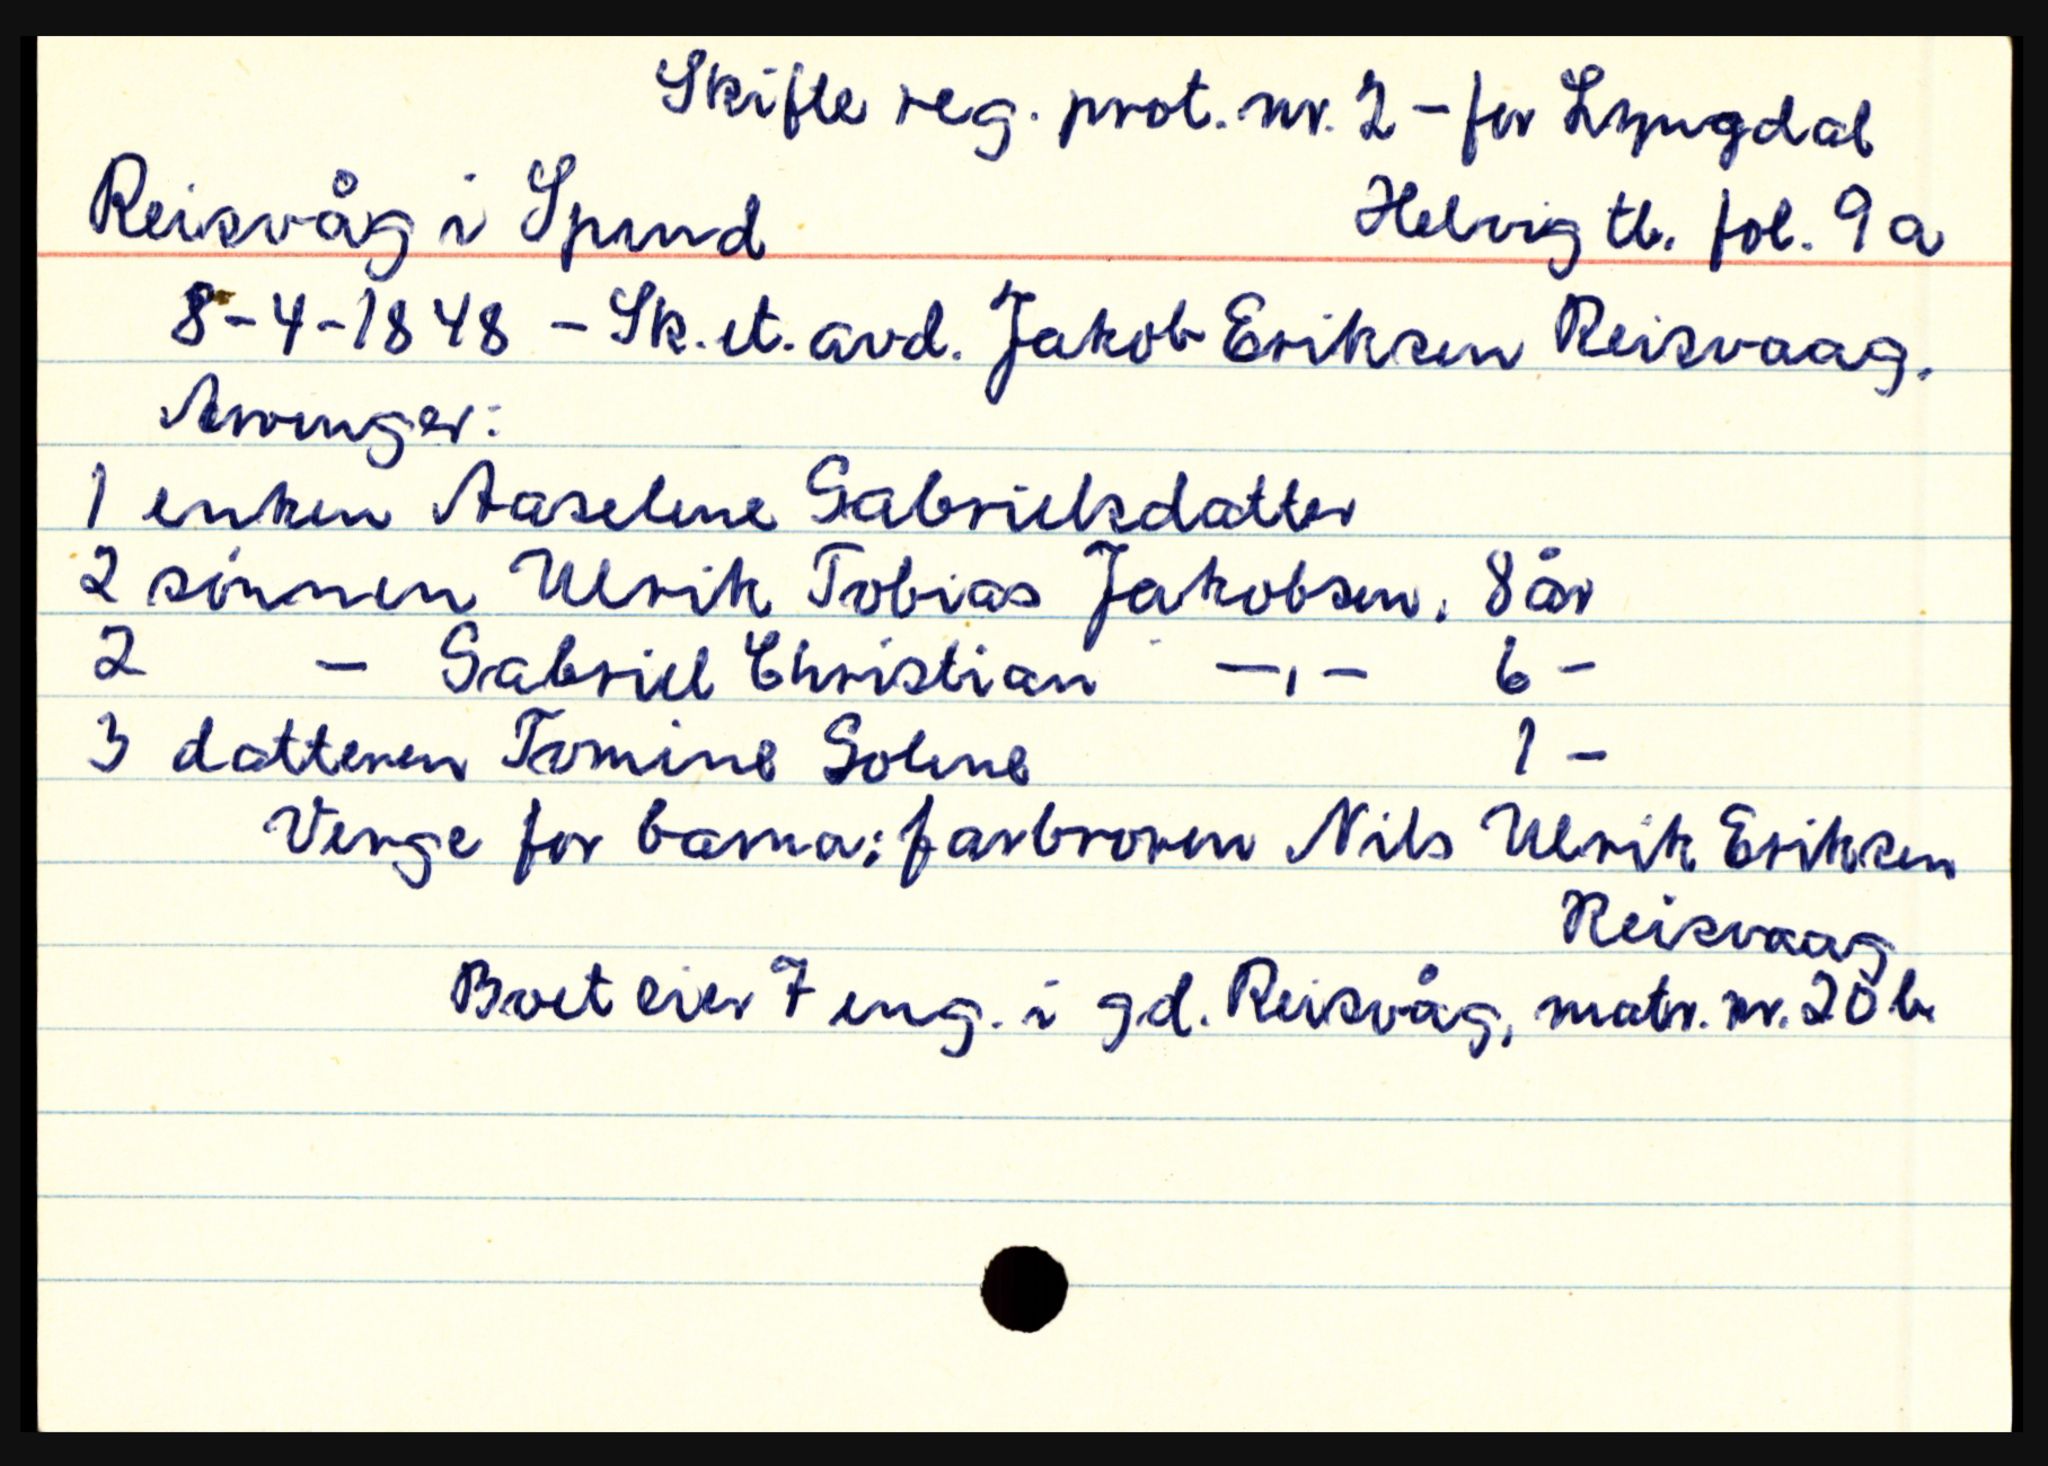 Skifte reg. prot. nr. 2 - for Lyngdal
Reisvåg i Spind Helvig tl. fol. 9a
8-4-1848 - Sk. et. avd. Jakob Eriksen Reisvaag.
Arvinger:
1 enken Aaselene Gabrielsdatter
2 sønnen Ulrik Tobias Jakobsen, 8 år
2 - Gabriel Christian -,- 6 -
3 datteren Tomine Goline 1 -
Verge for barna: farbroren Nils Ulrik Eriksen
Reisvaag
Boet eier 7 eng. i gd. Reisvåg, matr. nr. 20 b.